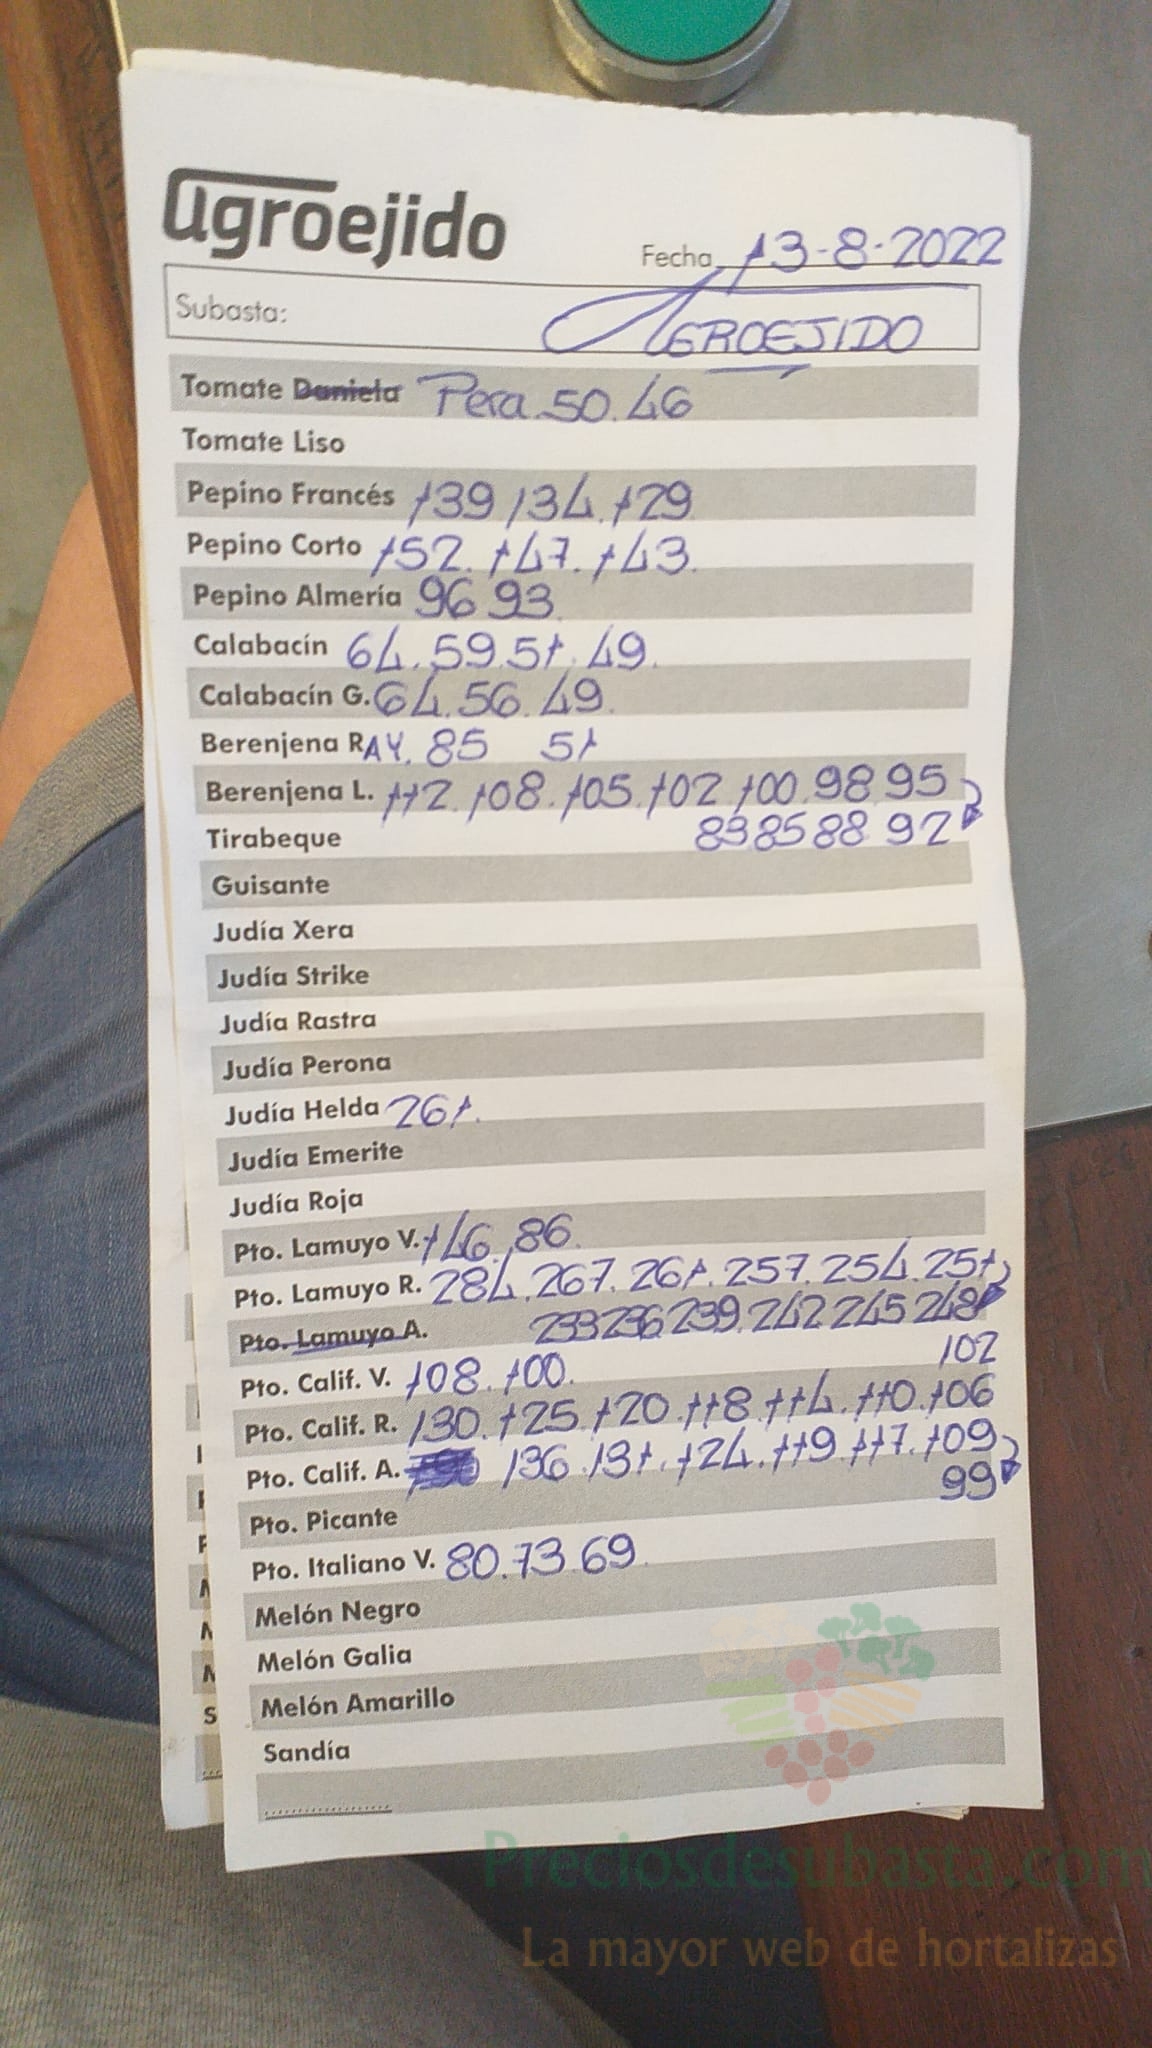 agroejido
Fecha 13-8-2022
Subasta: AGROEJIDO
Tomate Daniela Pera 50. 46
Tomate Liso
Pepino Francés 139 134. 129
Pepino Corto 152. 147. 143.
Pepino Almería 96 93.
Calabacín 64. 59. 51. 49.
Calabacín G. 64. 56. 49.
Berenjena RAY. 85 51
Berenjena L. 112. 108. 105. 102 100. 98 95
Tirabeque 83 85 88 92
Guisante
Judía Xera
Judía Strike
Judía Rastra
Judía Perona
Judía Helda 261.
Judía Emerite
Judía Roja
Pto. Lamuyo V. 146. 86.
Pto. Lamuyo R. 284. 267. 261. 257. 254. 251
Pto. Lamuyo A. 233 236 239. 242 245 248
Pto. Calif. V. 108. 100. 102
Pto. Calif. R. 130. 125. 120. 118. 114. 110. 106
Pto. Calif. A. 136. 131. 124. 119. 117. 109
99
Pto. Picante
Pto. Italiano V. 80. 73. 69.
Melón Negro
Melón Galia
Melón Amarillo
Sandía
Preciosdesubasta.com
La mayor web de hortalizas